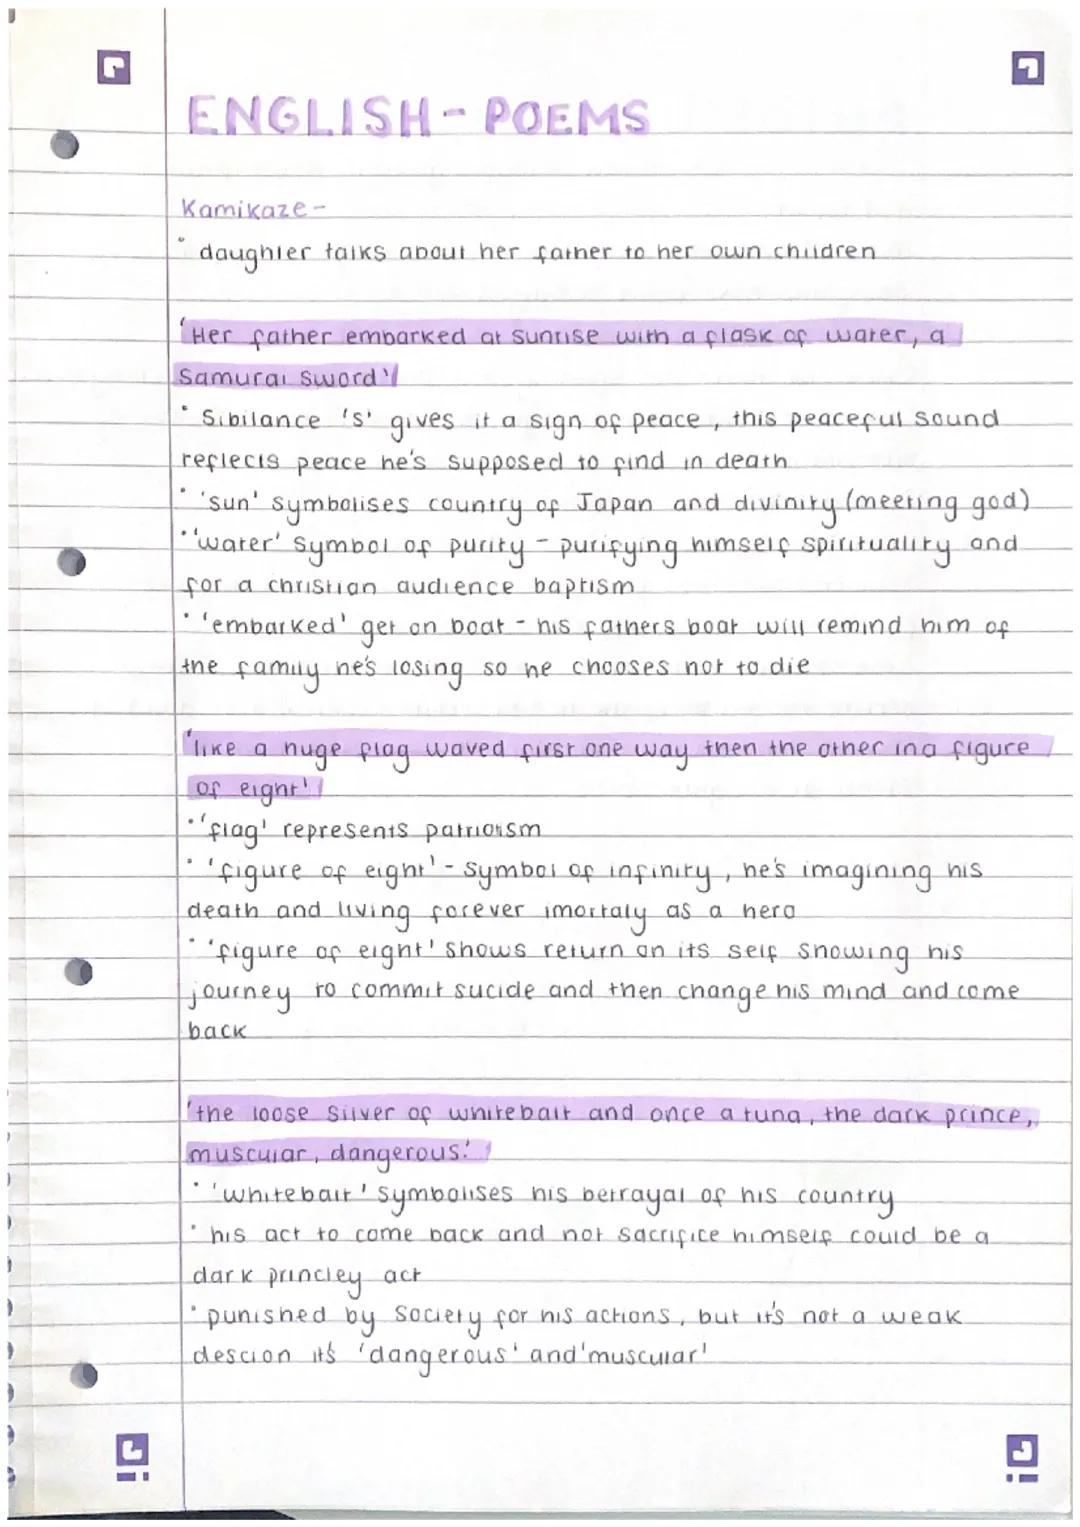 ENGLISH - POEMS
Kamikaze -
• daughter talks about her father to her own children
'Her father embarked at sunrise with a flask of water, a
Samurai sword'
• Sibilance 's' gives it a sign of peace, this peaceful sound
reflects peace he's supposed to find in death
• 'sun' symbolises country of Japan and divinity (meeting god)
• 'water' symbol of purity - purifying himself spirituality and
for a christian audience baptism
• 'embarked' get on boat - his fathers boat will remind him of
the family he's losing so he chooses not to die
'like a huge flag waved first one way then the other in a figure
of eight'
• 'flag' represents patriotism
• 'figure of eight' - Symbol of infinity, he's imagining his
death and living forever imortaly as a hero
• 'figure of eight' shows return on its self showing his
journey to commit sucide and then change his mind and come
back
'the loose silver of whitebait and once a tuna, the dark prince,
muscular, dangerous.'
• 'whitebait' symbolises his betrayal of his country
• his act to come back and not sacrifice himself could be a
dark princley act
• punished by society for his actions, but it's not a weak
descion it's 'dangerous' and 'muscular'